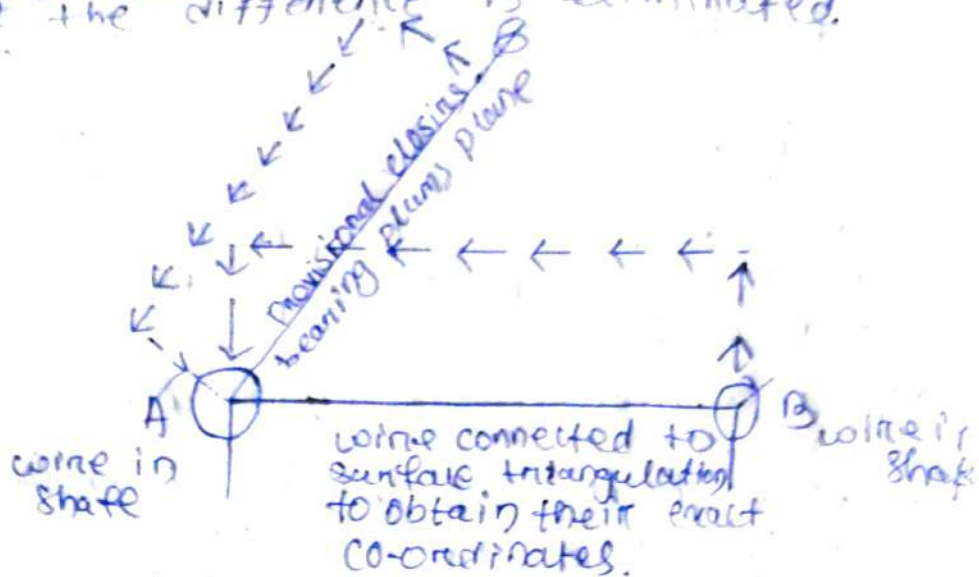 the difference is eliminated.
B
Provisional closing
bearing plumb plane
A
B
wire in
shaft
wire connected to
surface triangulation
to obtain their exact
co-ordinates.
wire in
shaft